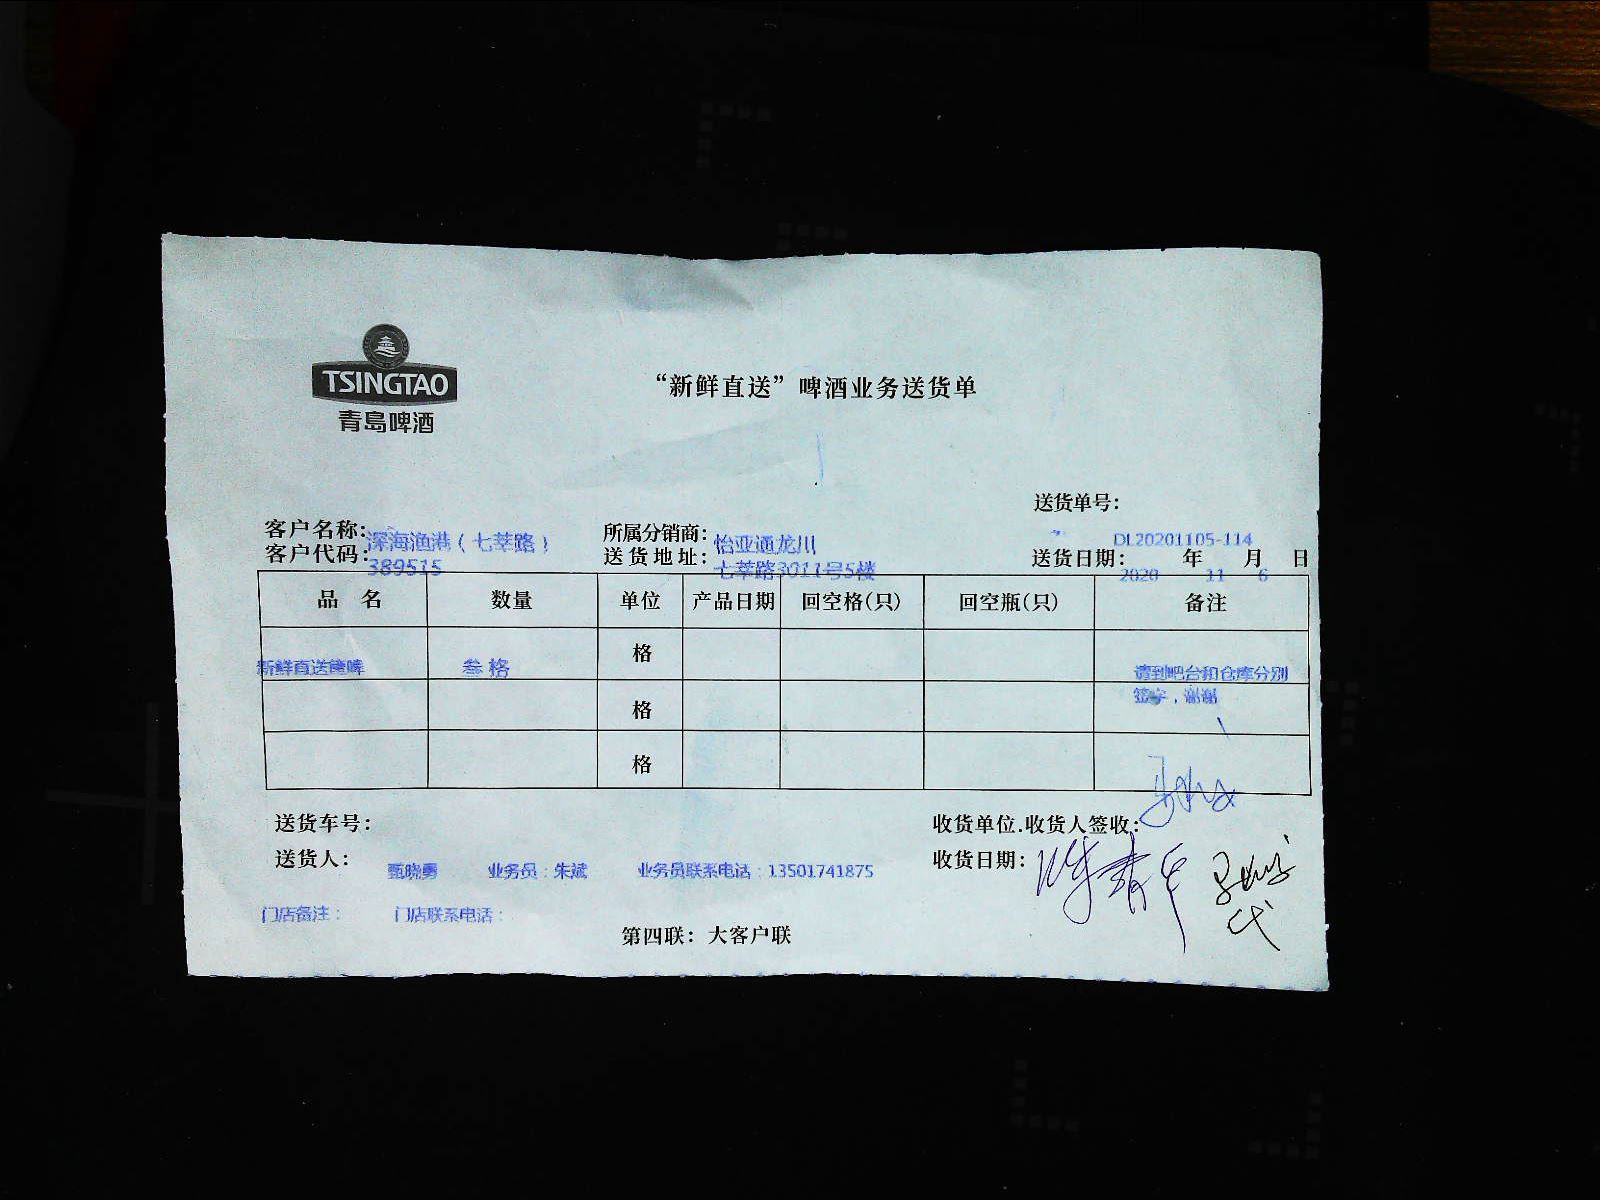 TSINGTAO
青岛啤酒
“新鲜直送”啤酒业务送货单
送货单号：
DL20201105-114
客户名称：深海渔港（七莘路）
所属分销商：怡亚通龙川
客户代码：389515
送货地址：七莘路3011号5楼
送货日期：2020年11月6日
品名 数量 单位 产品日期 回空格(只) 回空瓶(只) 备注
新鲜直送 叁格 格 请到吧台和仓库分别
签字，谢谢
格
格
送货车号：
收货单位.收货人签收：
送货人：甄晓勇 业务员：朱斌 业务员联系电话：13501741875
收货日期：
门店备注： 门店联系电话：
第四联：大客户联